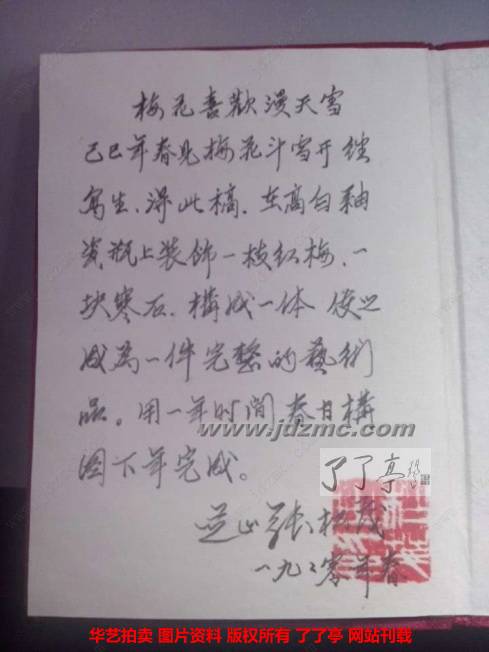 梅花喜歡漫天雪
己巳年春见梅花斗雪开 经
写生、得此稿、在高白釉
瓷瓶上装饰一枝红梅、一
块寒石、構成一体 使之
成為一件完整的藝術
品。用一年时间春日構
圖下年完成。
芝山張松茂
一九九零年春
www.jdzmc.com
了了亭
华艺拍卖 图片资料 版权所有 了了亭 网站刊载